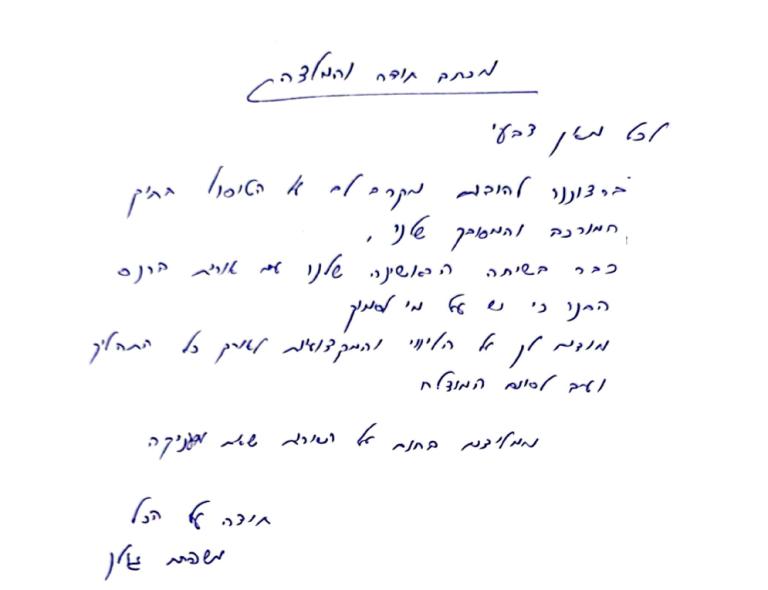 מכתב תודה והמלצה
לכל מאן דבעי
ברצוננו להוקיר מקרב לב את הטיפול בתיק
המורכב והמסובך שלנו,
כבר בשיחה הראשונה שלנו עם אורית
הבנו כי יש על מי לסמוך
מודים לך על הליווי והמקצועיות לאורך כל התהליך
ועד לסיום המוצלח
ממליצים בחום על השירות שאת מעניקה
תודה על הכל
משפחת